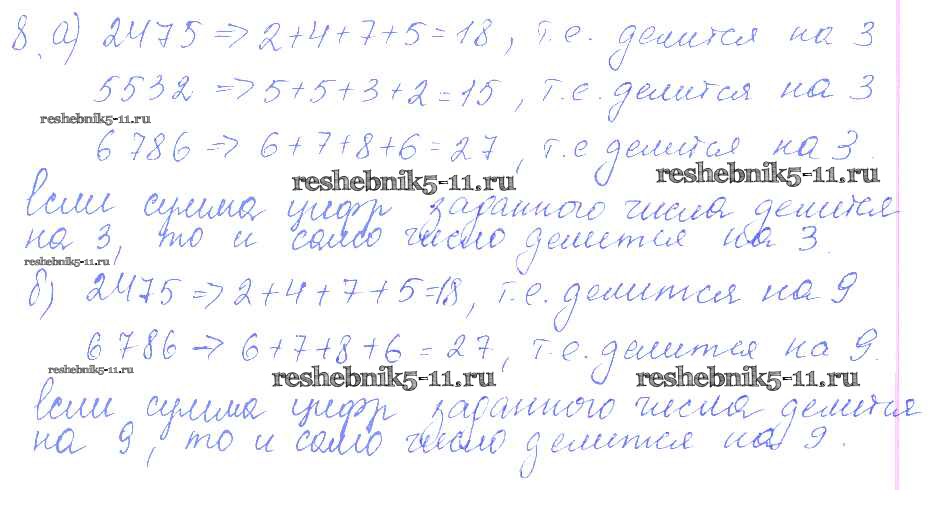 8 а) 2475 => 2+4+7+5=18, т.е. делится на 3
5532 => 5+5+3+2=15, т.е. делится на 3
reshebnik5-11.ru
6786 => 6+7+8+6=27, т.е делится на 3.
reshebnik5-11.ru reshebnik5-11.ru
Если сумма цифр заданного числа делится
на 3, то и само число делится на 3.
reshebnik5-11.ru
б) 2475 => 2+4+7+5=18, т.е. делится на 9
6786 -> 6+7+8+6=27, т.е. делится на 9.
reshebnik5-11.ru
reshebnik5-11.ru reshebnik5-11.ru
Если сумма цифр заданного числа делится
на 9, то и само число делится на 9.